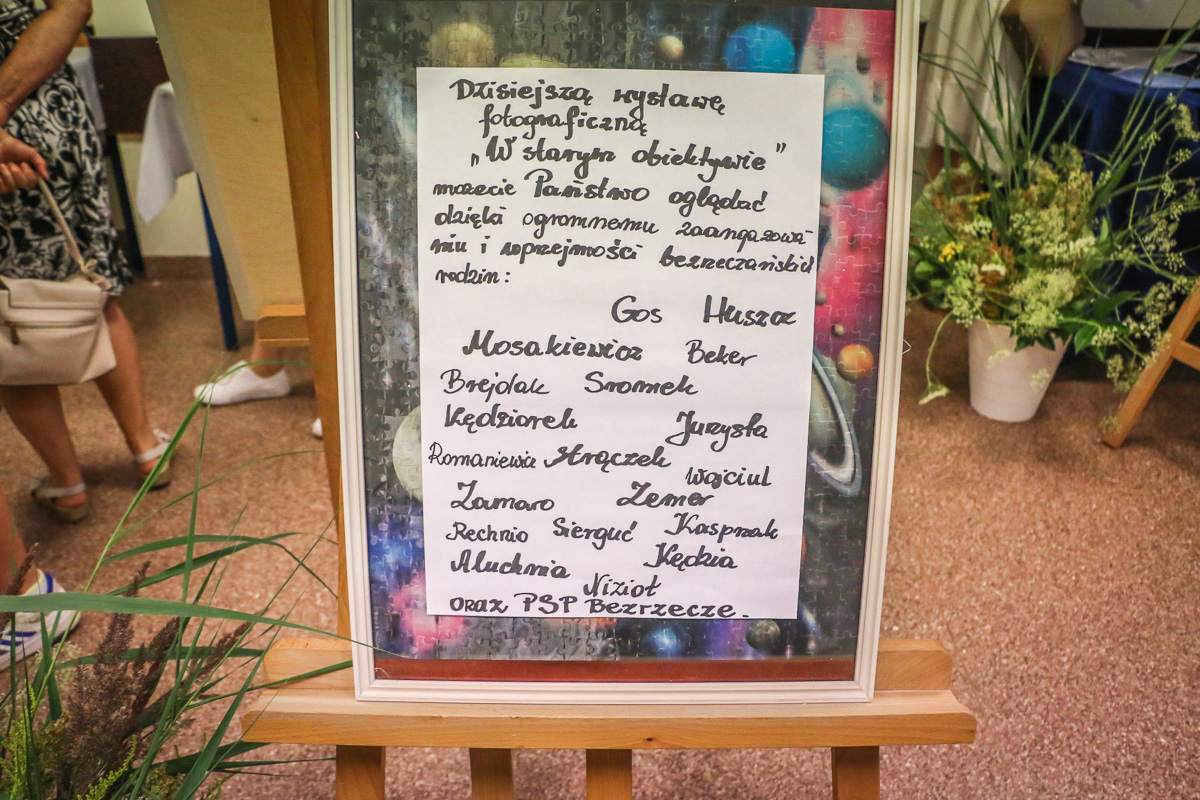 Dzisiejszą wystawę
fotograficzną
„W starym obiektywie"
możecie Państwo oglądać
dzięki ogromnemu zaangażowa-
niu i uprzejmości bezrzeczańskich
rodzin:
Gos Huszcz
Mosakiewicz Beker
Brejdak Sromek
Kędziorek Jurysta
Romaniewicz Strączek
Wojciul
Zamaro Zemer
Rechnio Sierguć Kasprzak
Aluchnia Kędzia
Nizioł
oraz PSP Bezrzecze.